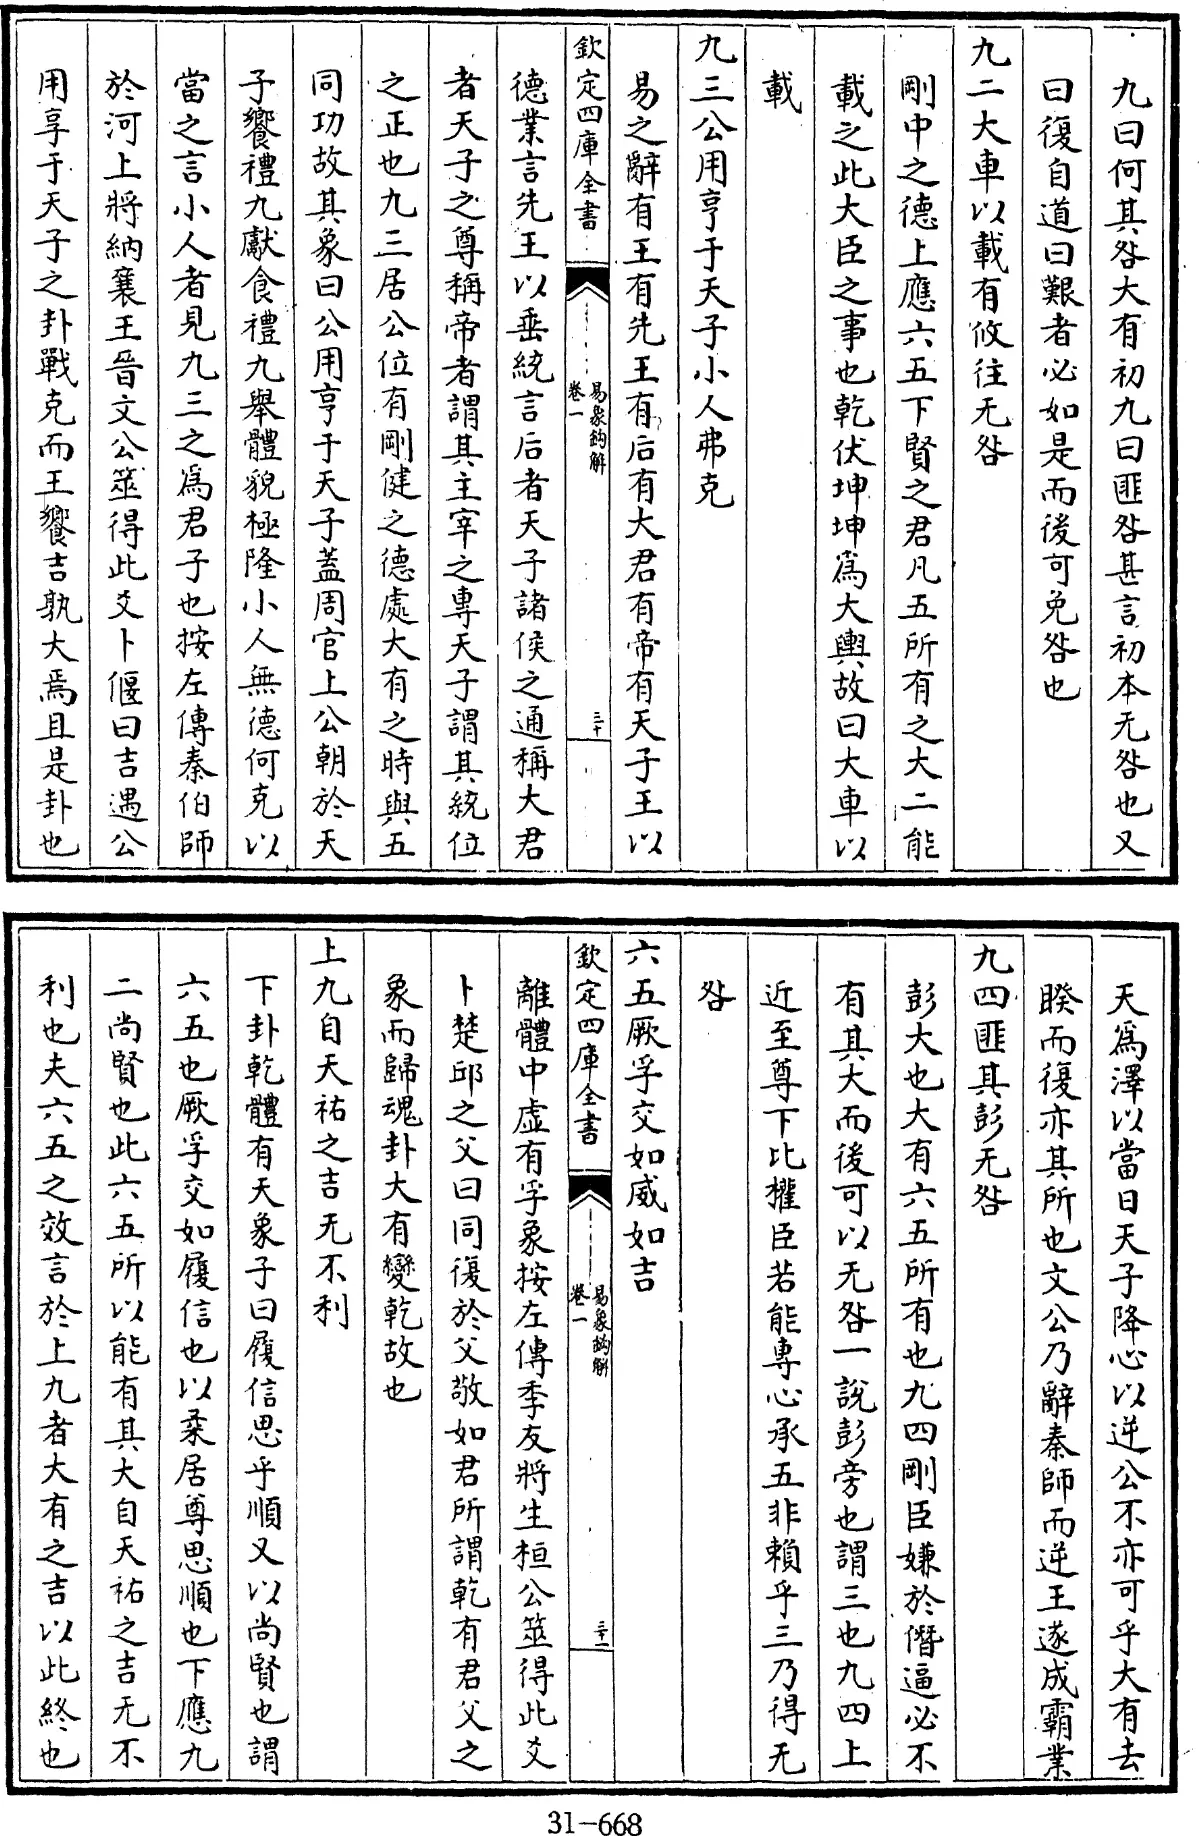 九曰何其咎大有初九曰匪咎甚言初本无咎也又
曰復自道曰艱者必如是而後可免咎也
九二大車以載有攸往无咎
剛中之德上應六五下賢之君凡五所有之大二能
載之此大臣之事也乾伏坤坤爲大輿故曰大車以
載
九三公用亨于天子小人弗克
易之辭有王有先王有后有大君有帝有天子王以
欽定四庫全書
易象鈎解
卷一
三十
德業言先王以垂統言后者天子諸侯之通稱大君
者天子之尊稱帝者謂其主宰之專天子謂其統位
之正也九三居公位有剛健之德處大有之時與五
同功故其象曰公用亨于天子蓋周官上公朝於天
子饗禮九獻食禮九舉體貌極隆小人無德何克以
當之言小人者見九三之爲君子也按左傳秦伯師
於河上將納襄王晉文公筮得此爻卜偃曰吉遇公
用享于天子之卦戰克而王饗吉孰大焉且是卦也
天爲澤以當日天子降心以逆公不亦可乎大有去
睽而復亦其所也文公乃辭秦師而逆王遂成霸業
九四匪其彭无咎
彭大也大有六五所有也九四剛臣嫌於僭逼必不
有其大而後可以无咎一說彭旁也謂三也九四上
近至尊下比權臣若能專心承五非賴乎三乃得无
咎
六五厥孚交如威如吉
欽定四庫全書
易象鈎解
卷一
三十一
離體中虛有孚象按左傳季友將生桓公筮得此爻
卜楚邱之父曰同復於父敬如君所謂乾有君父之
象而歸魂卦大有變乾故也
上九自天祐之吉无不利
下卦乾體有天象子曰履信思乎順又以尚賢也謂
六五也厥孚交如履信也以柔居尊思順也下應九
二尚賢也此六五所以能有其大自天祐之吉无不
利也夫六五之效言於上九者大有之吉以此終也
31-668